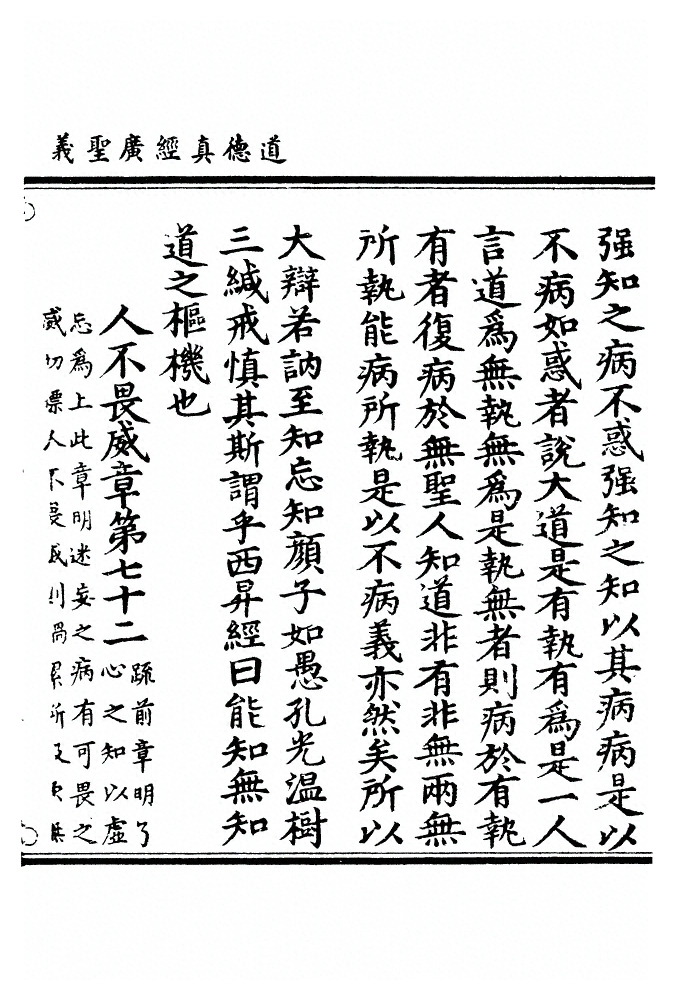 道德真經廣聖義
强知之病不惑强知之知以其病病是以
不病如惑者說大道是有執有爲是一人
言道爲無執無爲是執無者則病於有執
有者復病於無聖人知道非有非無兩無
所執能病所執是以不病義亦然矣所以
大辯若訥至知忘知顔子如愚孔光温樹
三緘戒慎其斯謂乎西昇經曰能知無知
道之樞機也
人不畏威章第七十二
䟽前章明了
心之知以虛
忘爲上此章明迷妄之病有可畏之
威切標人不畏威則